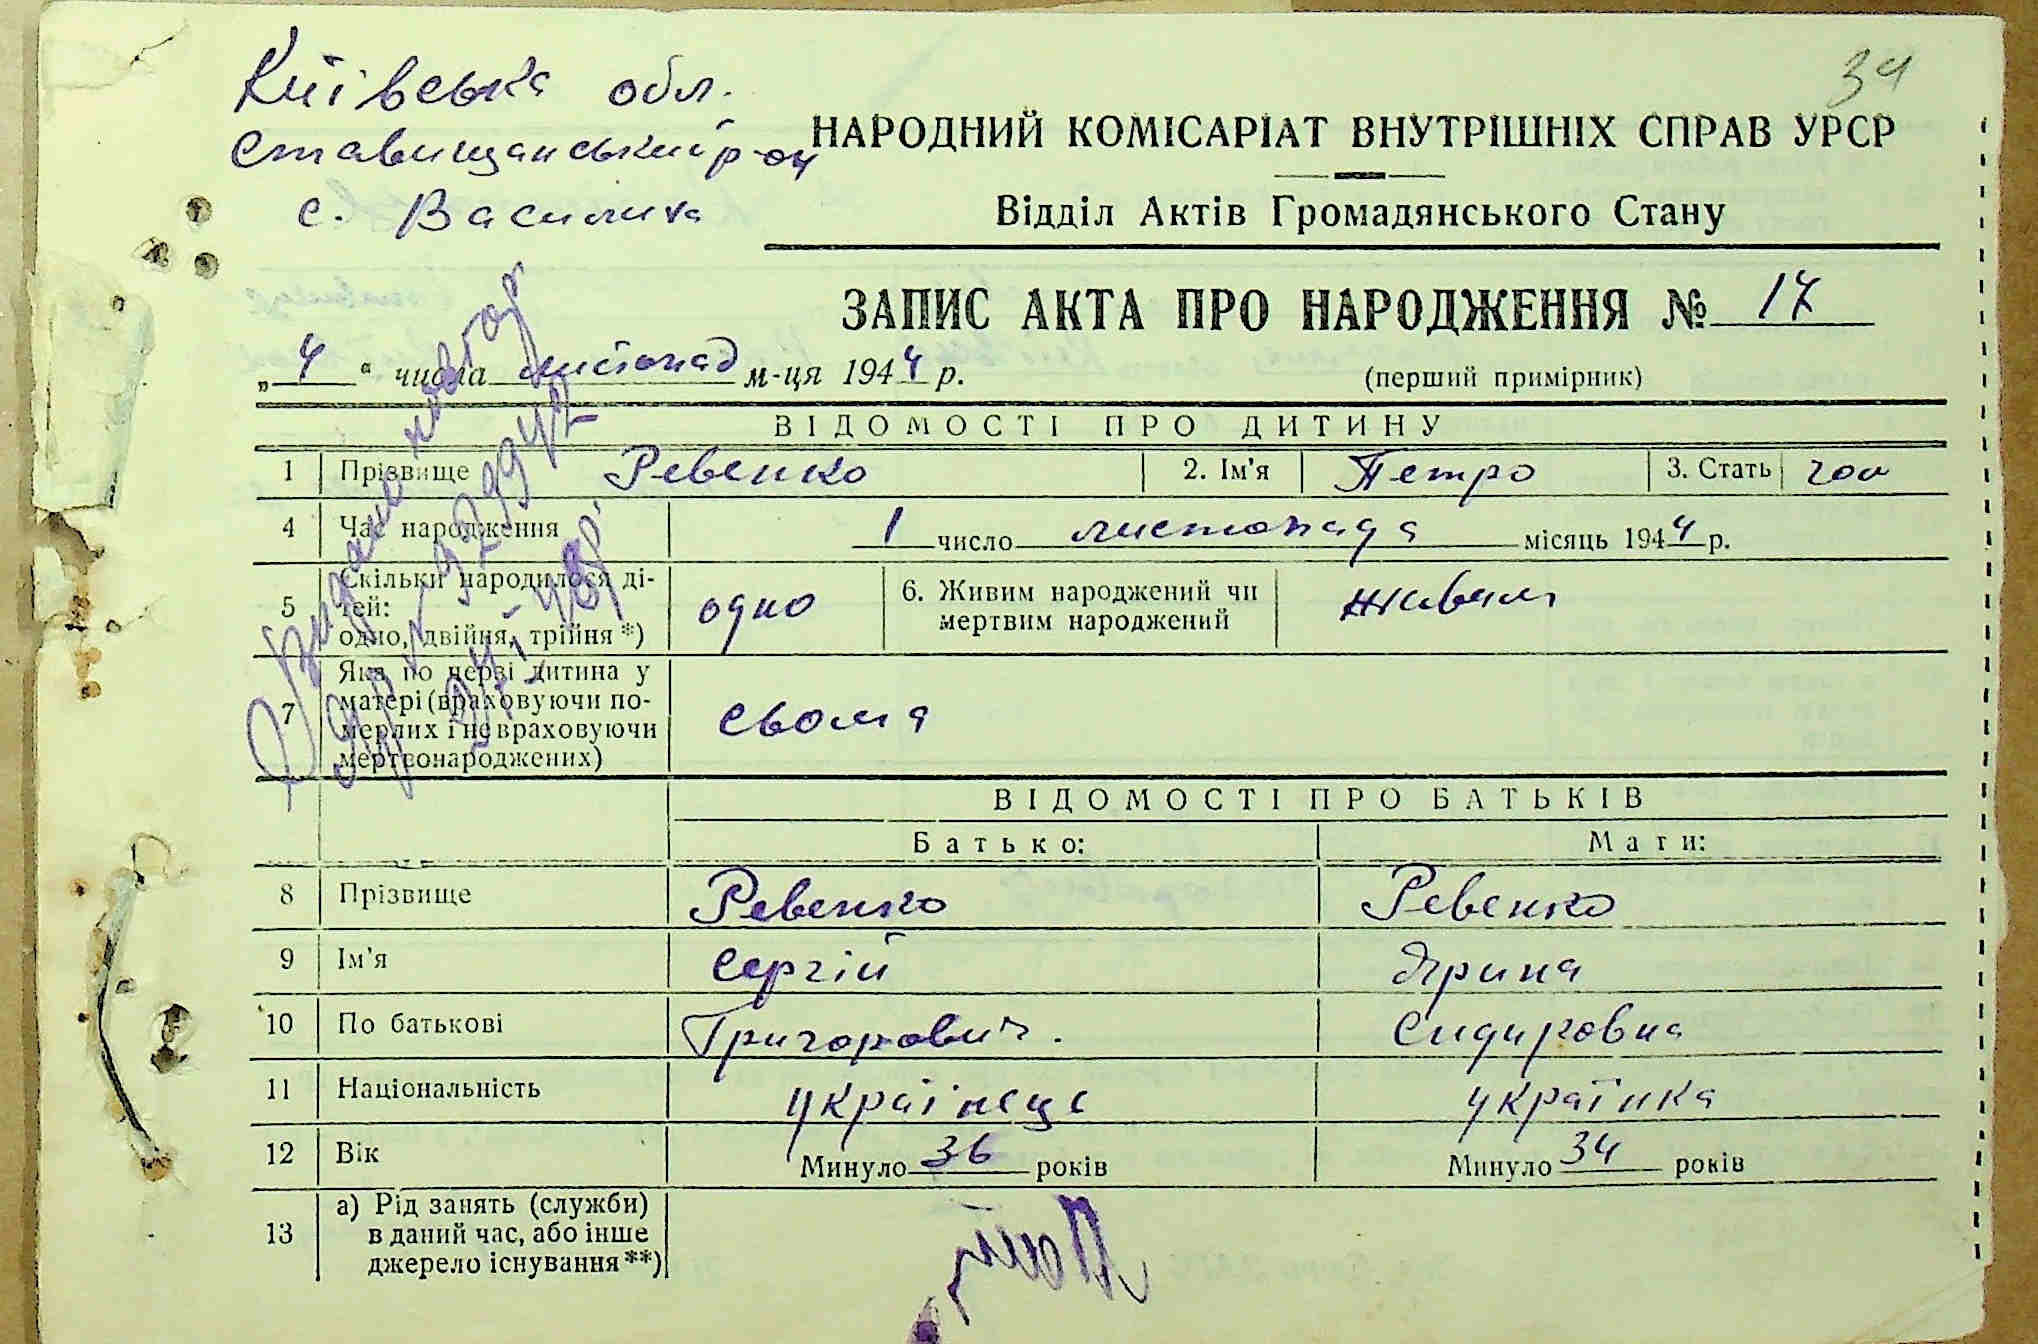 34
Київська обл.
Ставищанський р-он
с. Василиха
НАРОДНИЙ КОМІСАРІАТ ВНУТРІШНІХ СПРАВ УРСР
Відділ Актів Громадянського Стану
ЗАПИС АКТА ПРО НАРОДЖЕННЯ № 17
„ 4 “ числа листопад м-ця 1944 р.
(перший примірник)
ВІДОМОСТІ ПРО ДИТИНУ
1 Прізвище Ревенко 2. Ім'я Петро 3. Стать чол
4 Час народження 1 число листопада місяць 1944 р.
5 Скільки народилося ді-
тей:
одно, двійня, трійня *) одно 6. Живим народжений чи
мертвим народжений живим
7 Яка по черзі дитина у
матері (враховуючи по-
мерлих і не враховуючи
мертвонароджених) сьома
Видано повтор
ВІДОМОСТІ ПРО БАТЬКІВ
Батько: Мати:
8 Прізвище Ревенко Ревенко
9 Ім'я Сергій Ярина
10 По батькові Григорович. Сидировна
11 Національність українець українка
12 Вік Минуло 36 років Минуло 34 років
13 а) Рід занять (служби)
в даний час, або інше
джерело існування **)